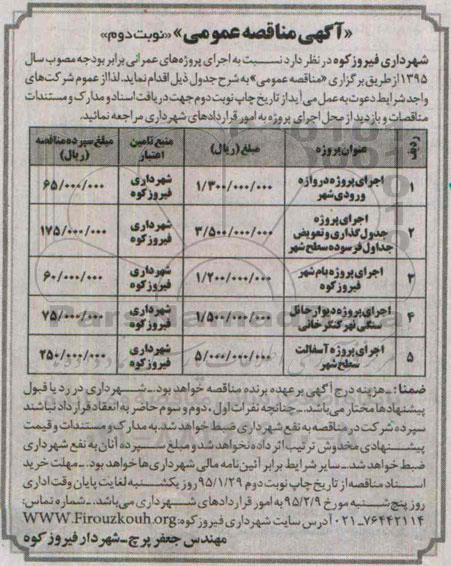 «آگهی مناقصه عمومی» «نوبت دوم»
شهرداری فیروزکوه در نظر دارد نسبت به اجرای پروژه‌های عمرانی برابر بودجه مصوب سال
۱۳۹۵ از طریق برگزاری «مناقصه عمومی» به شرح جدول ذیل اقدام نماید. لذا از عموم شرکت‌های
واجد شرایط دعوت به عمل می‌آید از تاریخ چاپ نوبت دوم جهت دریافت اسناد و مدارک و مستندات
مناقصات و بازدید از محل اجرای پروژه به امور قراردادهای شهرداری مراجعه نمائید.
ردیف عنوان پروژه مبلغ (ریال) منبع تامین اعتبار مبلغ سپرده مناقصه (ریال)
۱ اجرای پروژه دروازه ورودی شهر ۱/۳۰۰/۰۰۰/۰۰۰ شهرداری فیروزکوه ۶۵/۰۰۰/۰۰۰
۲ اجرای پروژه جدول گذاری و تعویض جداول فرسوده سطح شهر ۳/۵۰۰/۰۰۰/۰۰۰ شهرداری فیروزکوه ۱۷۵/۰۰۰/۰۰۰
۳ اجرای پروژه بام شهر فیروزکوه ۱/۲۰۰/۰۰۰/۰۰۰ شهرداری فیروزکوه ۶۰/۰۰۰/۰۰۰
۴ اجرای پروژه دیوار حائل سنگی نهر کنگرخانی ۱/۵۰۰/۰۰۰/۰۰۰ شهرداری فیروزکوه ۷۵/۰۰۰/۰۰۰
۵ اجرای پروژه آسفالت سطح شهر ۵/۰۰۰/۰۰۰/۰۰۰ شهرداری فیروزکوه ۲۵۰/۰۰۰/۰۰۰
ضمنا: ـ هزینه درج آگهی بر عهده برنده مناقصه خواهد بود. ـ شهرداری در رد یا قبول
پیشنهادها مختار می‌باشد. ـ چنانچه نفرات اول، دوم و سوم حاضر به انعقاد قرارداد نباشند
سپرده شرکت در مناقصه به نفع شهرداری ضبط خواهد شد. به مدارک و مستندات و قیمت
پیشنهادی مخدوش ترتیب اثر داده نخواهد شد و مبلغ سپرده آنان به نفع شهرداری
ضبط خواهد شد. ـ سایر شرایط برابر آئین‌نامه مالی شهرداری‌ها خواهد بود. ـ مهلت خرید
اسناد مناقصه از تاریخ چاپ نوبت دوم ۹۵/۱/۲۹ روز یکشنبه لغایت پایان وقت اداری
روز پنج شنبه مورخ ۹۵/۲/۹ به امور قراردادهای شهرداری می‌باشد. ـ شماره تماس:
۷۶۴۴۲۱۱۴-۰۲۱ آدرس سایت شهرداری فیروزکوه: WWW.Firouzkouh.org
مهندس جعفر پرچ ـ شهردار فیروزکوه